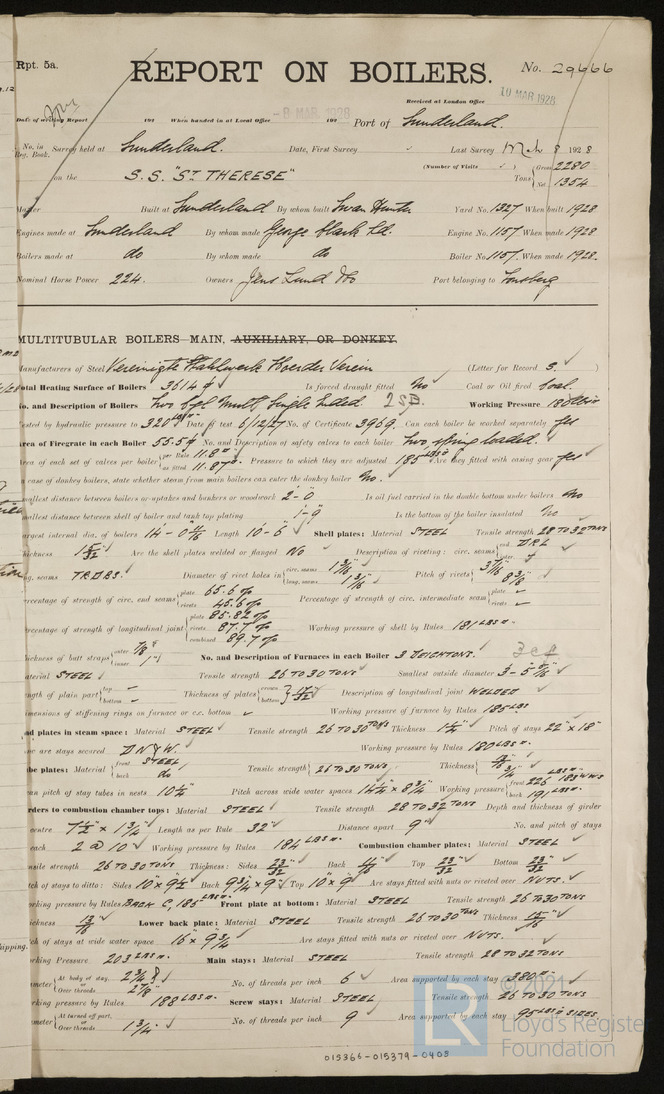 Rpt. 5a.
REPORT ON BOILERS.
No. 29666
Received at London Office
10 MAR 1928
Date of writing Report 192 When handed in at Local Office -8 MAR. 1928 192 Port of Sunderland.
No. in Reg. Book. Survey held at Sunderland. Date, First Survey Last Survey Mch 8 1928
on the S.S. "ST THERESE" (Number of Visits ) Tons Gross 2280 Net 1354
Master Built at Sunderland By whom built Swan Hunter Yard No. 1327 When built 1928
Engines made at Sunderland By whom made George Clark Ld. Engine No. 1157 When made 1928
Boilers made at do By whom made do Boiler No. 1157 When made 1928.
Nominal Horse Power 224. Owners Port belonging to Tonsberg
MULTITUBULAR BOILERS MAIN, AUXILIARY, OR DONKEY.
Manufacturers of Steel Vereinigte Stahlwerk Hoerder Verein (Letter for Record S. )
Total Heating Surface of Boilers 3614 Is forced draught fitted No Coal or Oil fired Coal.
No. and Description of Boilers Two Cyl Mult Single Ended. 2 SB. Working Pressure 180 lbs
Tested by hydraulic pressure to 320 LBS Date of test 6/12/27 No. of Certificate 3969. Can each boiler be worked separately Yes
Area of Firegrate in each Boiler 55.5 No. and Description of safety valves to each boiler Two, spring loaded.
Area of each set of valves per boiler per Rule 11.8 as fitted 11.87 Pressure to which they are adjusted 185 LBS Are they fitted with easing gear Yes
In case of donkey boilers, state whether steam from main boilers can enter the donkey boiler No.
Smallest distance between boilers or uptakes and bunkers or woodwork 2'-0" Is oil fuel carried in the double bottom under boilers No
Smallest distance between shell of boiler and tank top plating 1'-9 Is the bottom of the boiler insulated No
Largest internal dia. of boilers 14'-0 Length 10'-6" Shell plates: Material STEEL Tensile strength 28 TO 32 TONS
Thickness Are the shell plates welded or flanged NO Description of riveting: circ. seams end D.R.L inter.
long. seams T.R.D.B.S. Diameter of rivet holes in circ. seams long. seams 1 3/16" Pitch of rivets 8 5/8"
Percentage of strength of circ. end seams plate 65.6 % rivets 45.6 % Percentage of strength of circ. intermediate seam plate rivets
Percentage of strength of longitudinal joint plate 85.82 % rivets 87.7 % combined 89.7 % Working pressure of shell by Rules 181 LBS
Thickness of butt straps outer 7/8" inner 1" No. and Description of Furnaces in each Boiler 3 DEIGHTONS.
Material STEEL Tensile strength 26 TO 30 TONS Smallest outside diameter
Length of plain part top bottom Thickness of plates crown bottom 17/32" Description of longitudinal joint WELDED
Dimensions of stiffening rings on furnace or c.c. bottom Working pressure of furnace by Rules 185 LBS
End plates in steam space: Material STEEL Tensile strength 26 TO 30 TONS Thickness Pitch of stays 22" x 18"
How are stays secured D.N & W. Working pressure by Rules 180 LBS
Tube plates: Material front STEEL back do Tensile strength 26 TO 30 TONS Thickness 3/4"
Mean pitch of stay tubes in nests 10 1/2 Pitch across wide water spaces 14 1/2" x 8 3/4" Working pressure front 226 LBS back 191 LBS
Girders to combustion chamber tops: Material STEEL Tensile strength 28 TO 32 TONS Depth and thickness of girder
centre 7 1/2" x 1 3/4" Length as per Rule 32" Distance apart 9" No. and pitch of stays
each 2 @ 10" Working pressure by Rules 184 LBS Combustion chamber plates: Material STEEL
Tensile strength 26 TO 30 TONS Thickness: Sides 23/32" Back 11/16" Top 23/32" Bottom 23/32"
Pitch of stays to ditto: Sides 10" x 9 1/2" Back 9 3/4" x 9" Top 10" x 9" Are stays fitted with nuts or riveted over NUTS.
Working pressure by Rules BACK C, 185 LBS Front plate at bottom: Material STEEL Tensile strength 26 TO 30 TONS
Thickness Lower back plate: Material STEEL Tensile strength 26 TO 30 TONS Thickness 15/16"
Pitch of stays at wide water space 16" x 9 3/4 Are stays fitted with nuts or riveted over NUTS.
Working Pressure 203 LBS Main stays: Material STEEL Tensile strength 28 TO 32 TONS
Diameter At body of stay, or Over threads 2 7/8" No. of threads per inch 6 Area supported by each stay 380
Working pressure by Rules 188 LBS Screw stays: Material STEEL Tensile strength 26 TO 30 TONS
Diameter At turned off part, or Over threads 1 3/4" No. of threads per inch 9 Area supported by each stay 95 SIDES
© 2021
LR Lloyd's Register Foundation
015366-015379-0405